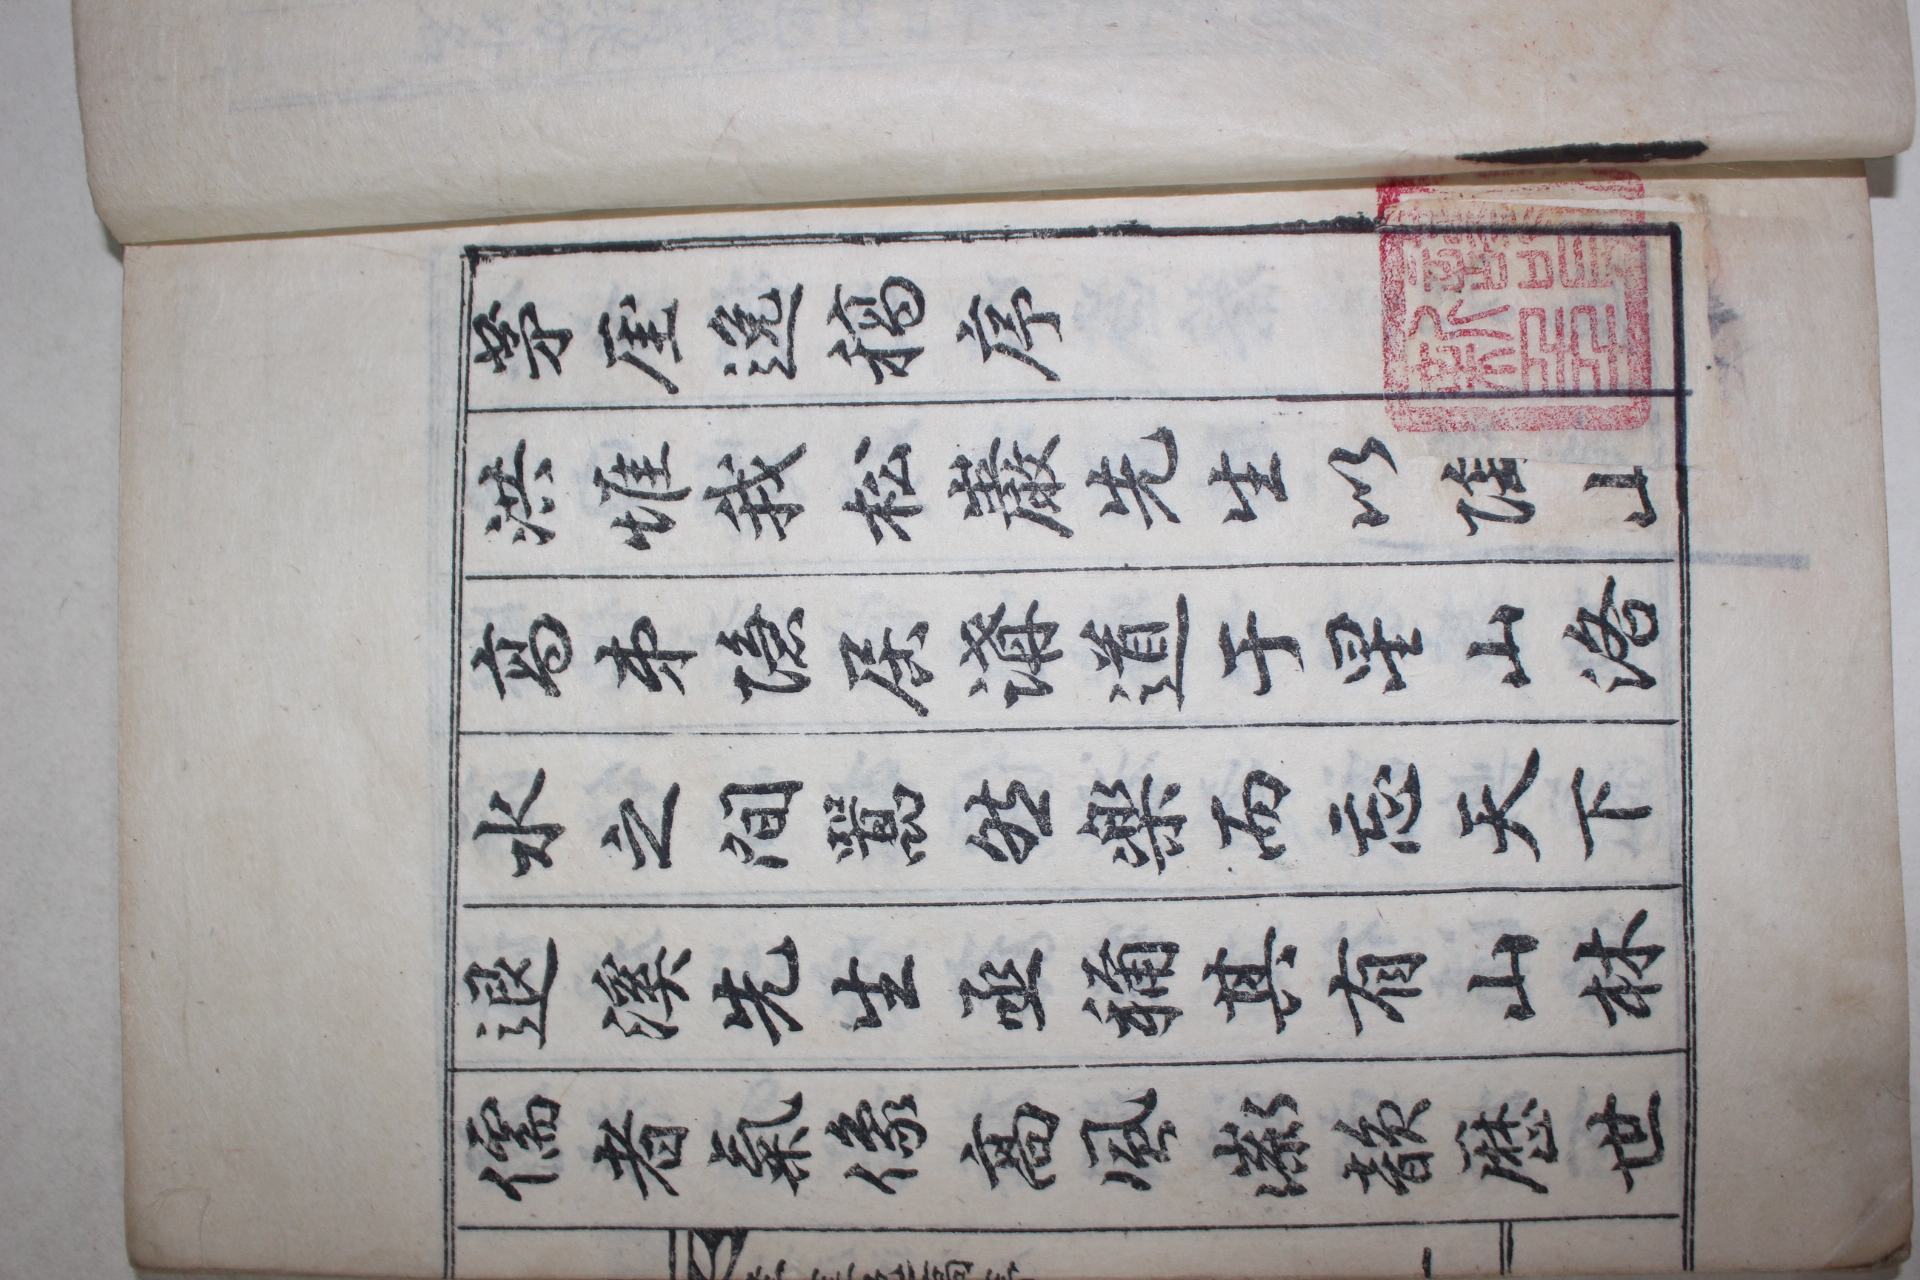 茅厓逸稿序
洪惟我松巖先生以陶山
高弟隱居講道于星山洛
水之間囂然樂而忘天下
退溪先生亟稱其有山林
儒者氣像高風潄韻歷世